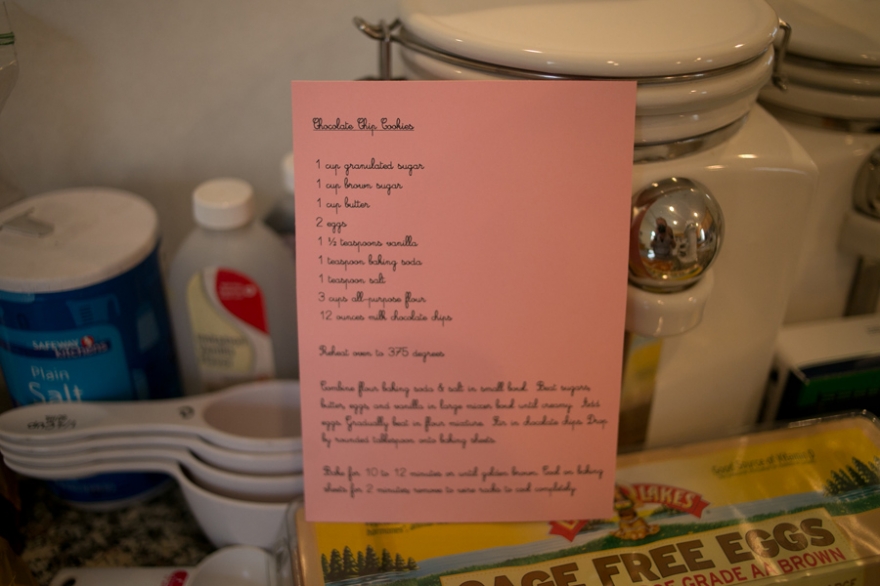 Chocolate Chip Cookies
1 cup granulated sugar
1 cup brown sugar
1 cup butter
2 eggs
1 ½ teaspoons vanilla
1 teaspoon baking soda
1 teaspoon salt
3 cups all-purpose flour
12 ounces milk chocolate chips
Preheat oven to 375 degrees
Combine flour baking soda & salt in small bowl. Beat sugars,
butter, eggs and vanilla in large mixer bowl until creamy. Add
eggs Gradually beat in flour mixture. Stir in chocolate chips. Drop
by rounded tablespoon onto baking sheets.
Bake for 10 to 12 minutes or until golden brown. Cool on baking
sheets for 2 minutes; remove to wire racks to cool completely.
SAFEWAY
kitchens
Plain
Salt
LAKES
CAGE FREE EGGS
GRADE AA BROWN